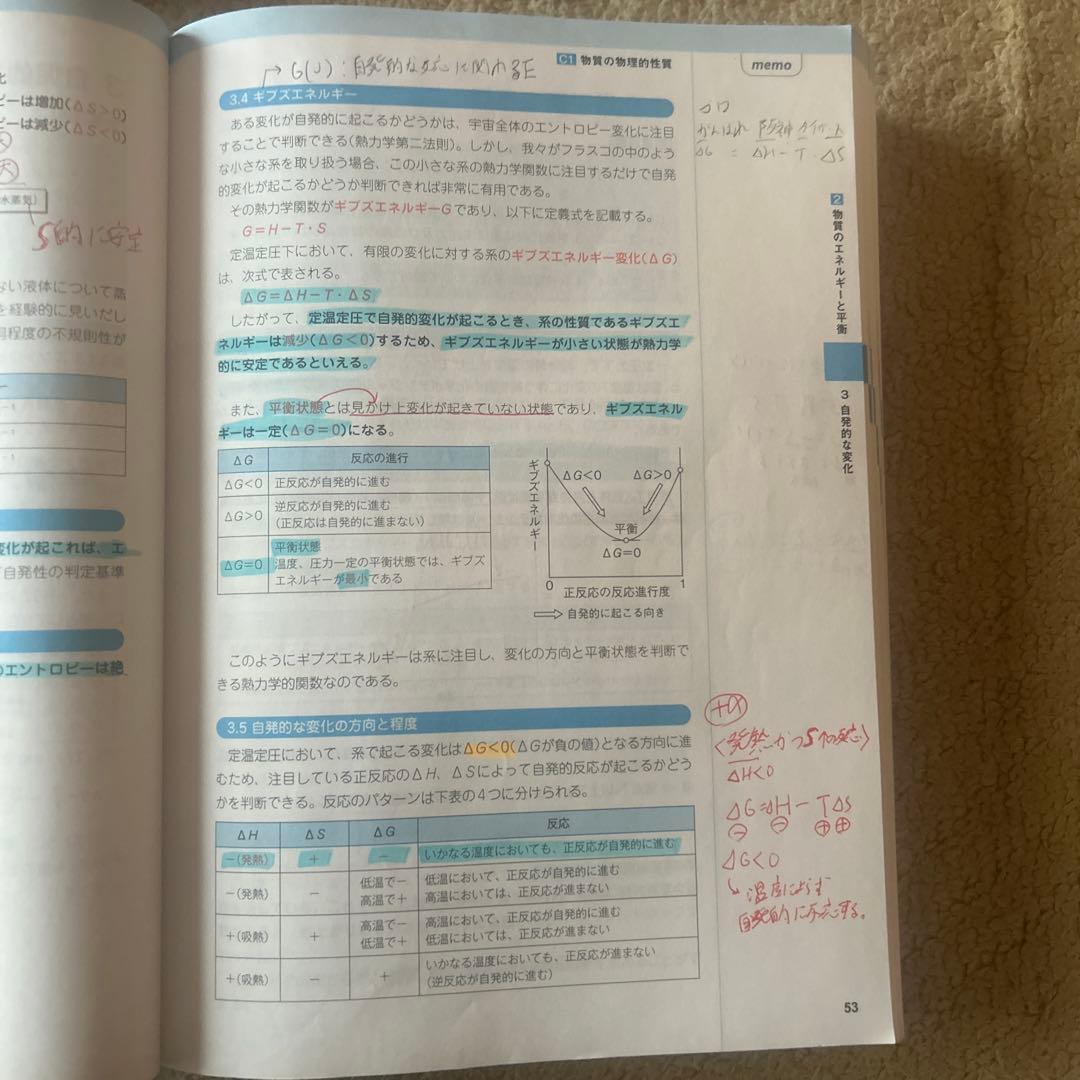 化
ピーは増加(ΔS>0)
ピーは減少(ΔS<0)
大
水蒸気)
S的に安定
ない液体について蒸
を経験的に見いだし
同程度の不規則性が
変化が起これば、エ
自発性の判定基準
のエントロピーは絶
C1 物質の物理的性質
memo
→ G(J):自発的な反応に関わるE
3.4 ギブズエネルギー
ある変化が自発的に起こるかどうかは、宇宙全体のエントロピー変化に注目
することで判断できる(熱力学第二法則)。しかし、我々がフラスコの中のよう
な小さな系を取り扱う場合、この小さな系の熱力学関数に注目するだけで自発
的変化が起こるかどうか判断できれば非常に有用である。
その熱力学関数がギブズエネルギーGであり、以下に定義式を記載する。
G=H−T・S
定温定圧下において、有限の変化に対する系のギブズエネルギー変化(ΔG)
は、次式で表される。
ΔG=ΔH−T・ΔS
したがって、定温定圧で自発的変化が起こるとき、系の性質であるギブズエ
ネルギーは減少(ΔG<0)するため、ギブズエネルギーが小さい状態が熱力学
的に安定であるといえる。
また、平衡状態とは見かけ上変化が起きていない状態であり、ギブズエネル
ギーは一定(ΔG=0)になる。
ΔG 反応の進行
ΔG<0 正反応が自発的に進む
ΔG>0 逆反応が自発的に進む
(正反応は自発的に進まない)
ΔG=0 平衡状態
温度、圧力一定の平衡状態では、ギブズ
エネルギーが最小である
ギブズエネルギー
ΔG<0 ΔG>0
平衡
ΔG=0
0 1
正反応の反応進行度
⇨ 自発的に起こる向き
このようにギブズエネルギーは系に注目し、変化の方向と平衡状態を判断で
きる熱力学的関数なのである。
3.5 自発的な変化の方向と程度
定温定圧において、系で起こる変化はΔG<0(ΔGが負の値)となる方向に進
むため、注目している正反応のΔH、ΔSによって自発的反応が起こるかどう
かを判断できる。反応のパターンは下表の4つに分けられる。
ΔH ΔS ΔG 反応
−(発熱) + − いかなる温度においても、正反応が自発的に進む
−(発熱) − 低温で− 低温において、正反応が自発的に進む
高温で+ 高温においては、正反応が進まない
+(吸熱) + 高温で− 高温において、正反応が自発的に進む
低温で+ 低温においては、正反応が進まない
+(吸熱) − + いかなる温度においても、正反応が進まない
(逆反応が自発的に進む)
ゴロ
がんばれ 阪神タイガース
ΔG = ΔH−T・ΔS
2 物質のエネルギーと平衡
3 自発的な変化
+α
ΔH<0
ΔG=ΔH−TΔS
⊖ ⊖ ⊕⊕
ΔG<0
↳ 温度によらず
自発的に反応する。
53